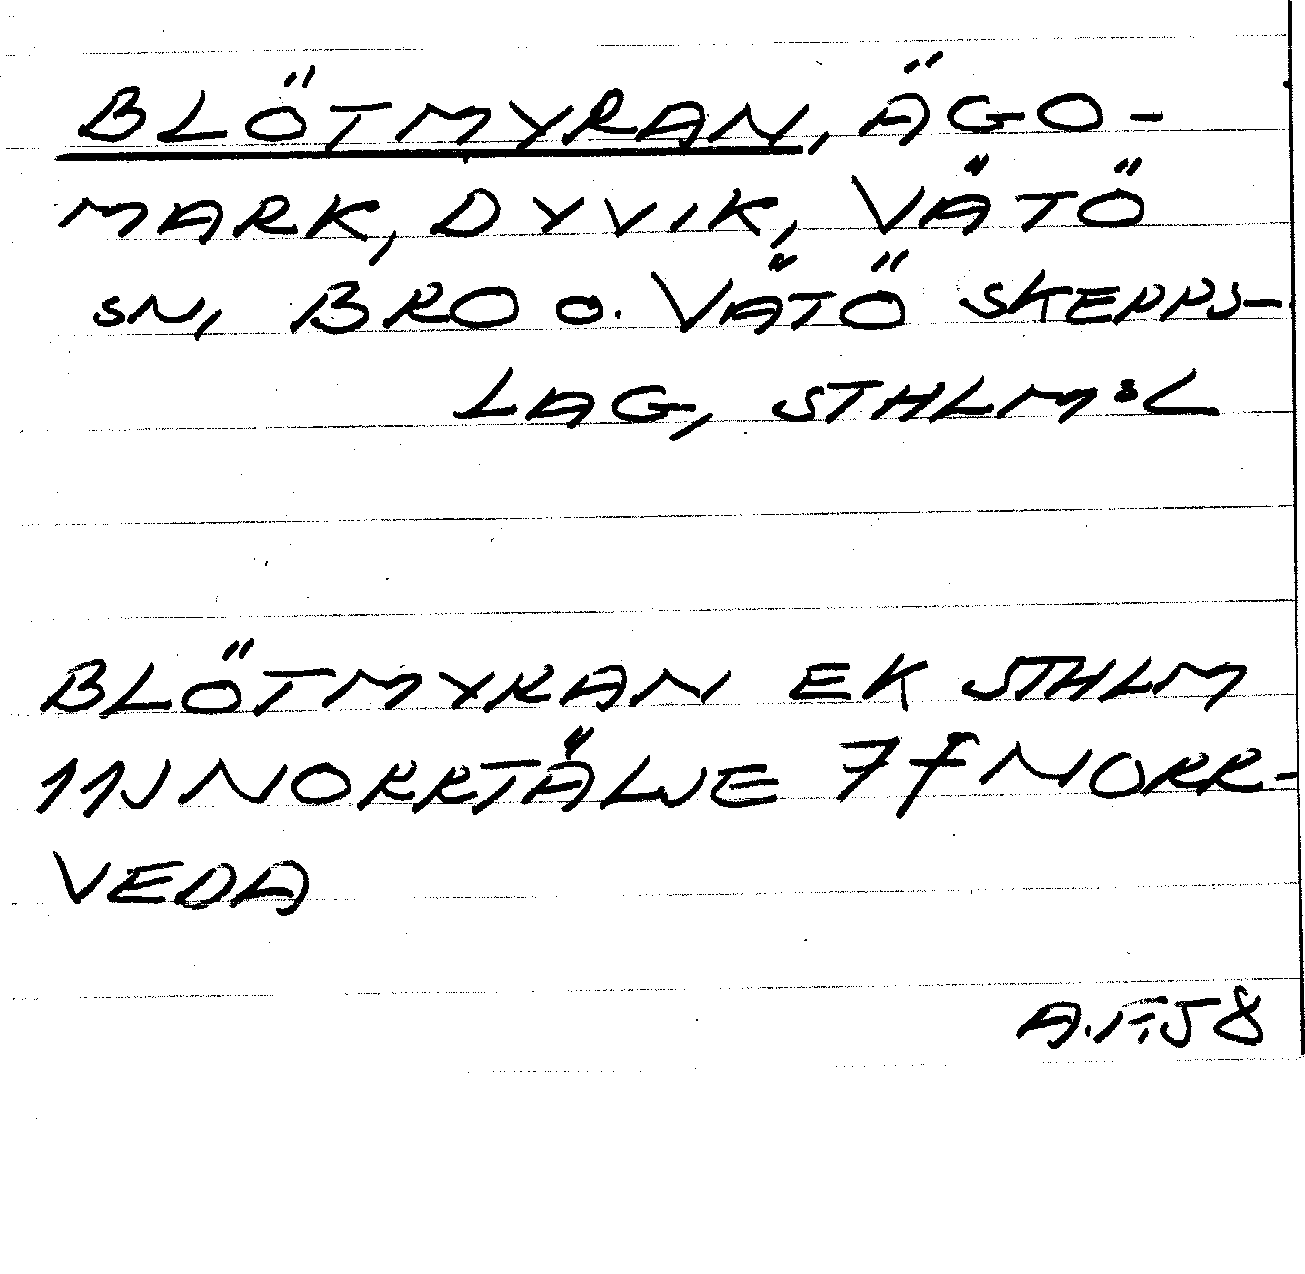 BLÖTMYRAN, ÄGO-
MARK, DYVIK, VÄTÖ
SN, BRO O. VÄTÖ SKEPPS-
LAG, STHLM:L
BLÖTMYRAN EK STHLM
11J NORRTÄLJE 7f NORR-
VEDA
A.F. 58